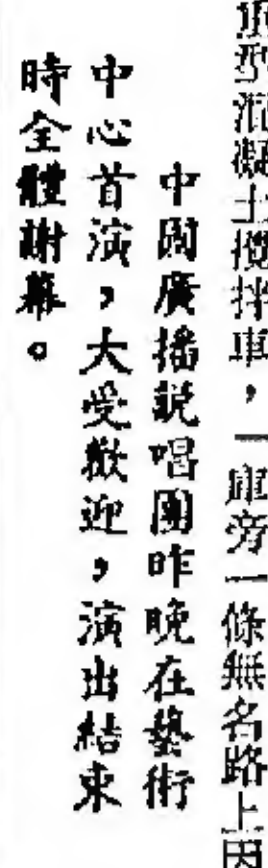 重型混凝土攪拌車，一庫旁一條無名路上因
中國廣播說唱團昨晚在藝術
中心首演，大受歡迎，演出結束
時全體謝幕。